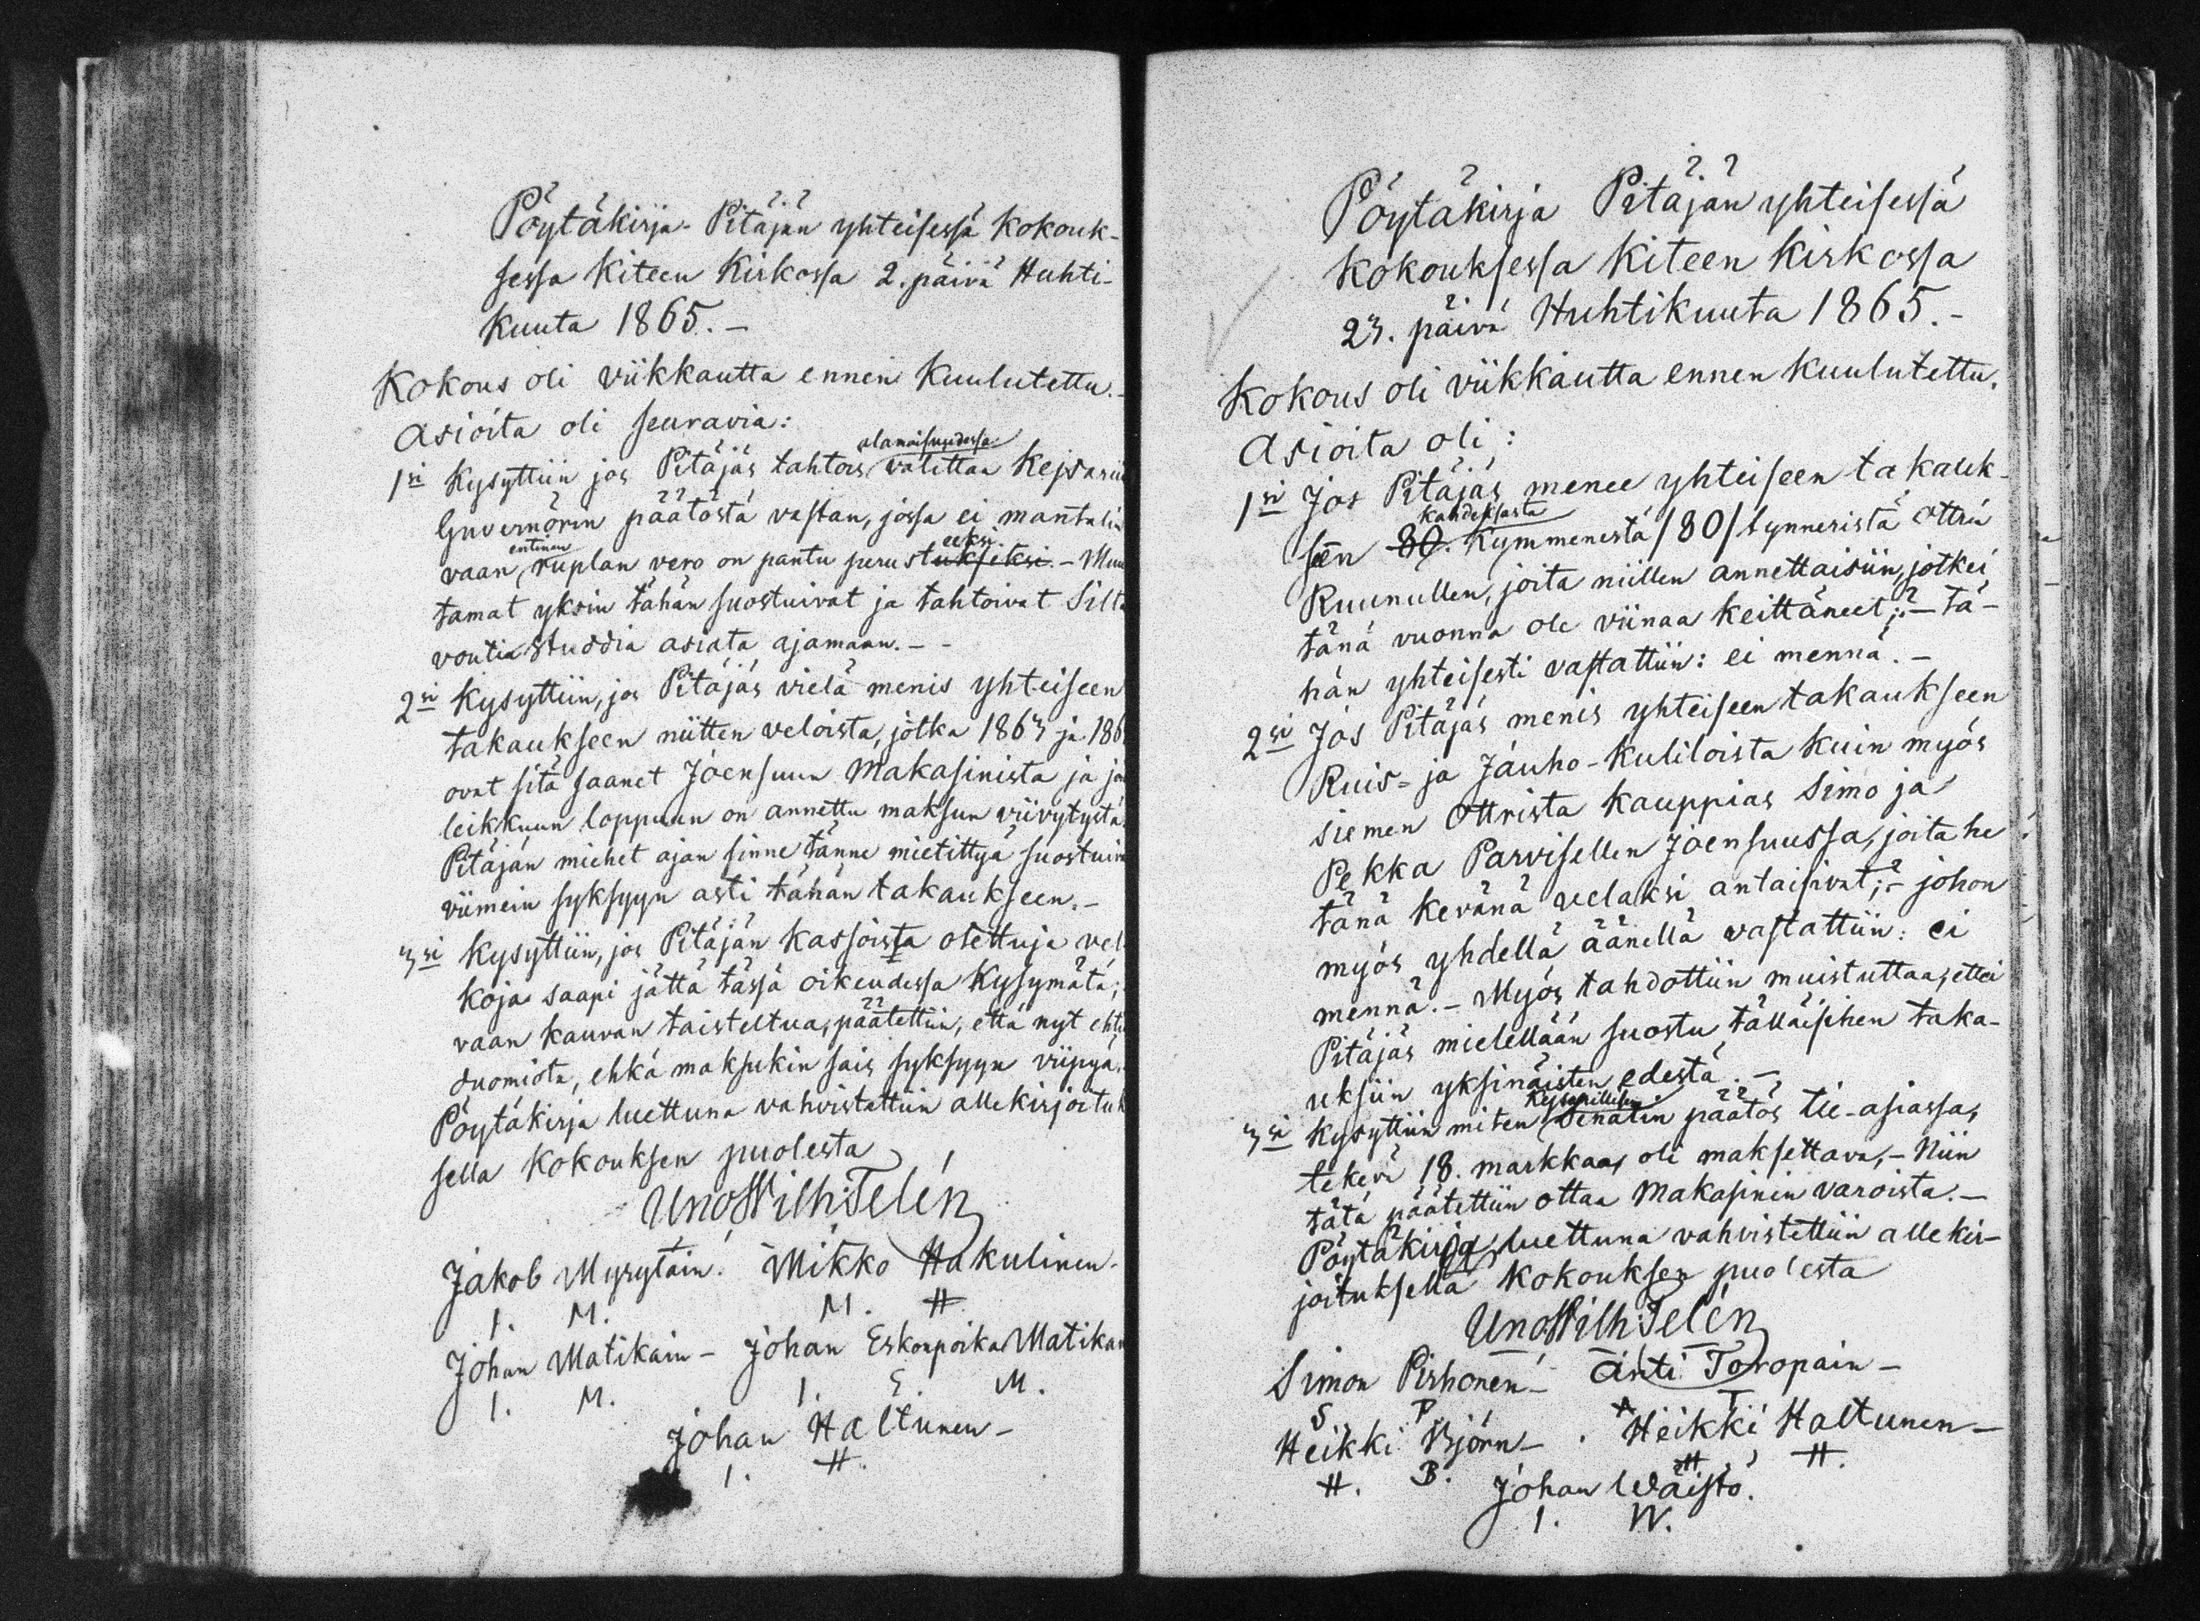 Pöytäkirja Pitäjän yhteisessä kokouk-
sessa Kiteen Kirkossa 2. päivä Huhti-
kuuta 1865. –
Kokous oli viikkautta ennen kuulutettu. –
Asioita oli seuravia:
1si Kysyttiin jos Pitäjäs tahtois alamaisuudessa valittaa Kejsarin
Guvernörin päätöstä vastan, jossa ei mantalin
vaan entinen ruplan vero on pantu perusteeksi. – Muu
tamat yksin tähän suostuivat ja tahtoivat Silta
voutia Studdia asiata ajamaan. –
2si Kysyttiin, jos Pitäjäs vielä menis yhteiseen
takaukseen niitten veloista, jotka 1863 ja 186
ovat sitä saanet Joensuun Makasinista ja jo
leikkuun loppuun on annettu maksun viivytystä.
Pitäjän miehet ajan sinne tänne mietittyä suostuiv
viimein syksyyn asti tähän takaukseen. –
3si Kysyttiin, jos Pitäjän kassoista otettuja vel
koja saapi jättä tässä oikeudessa Kysymätä;
vaan kauvan taisteltua, päätettiin, että nyt
duomiota, ehkä maksukin sais syksyyn viipyä.
Pöytäkirja luettuna vahvistettiin allekirjoituk
sella Kokouksen puolesta
Uno Wilh: Telén
Jakob Myrytäin. Mikko Hakulinen.
I. M. M. H.
Johan Matikain – Johan Eskonpoika Matikai
I. M. I. E. M.
Johan Haltunen –
I. H.
Pöytäkirja Pitäjän yhteisessä
kokouksessa Kiteen Kirkossa
23. päivä Huhtikuuta 1865. –
Kokous oli viikkautta ennen kuulutettu.
Asioita oli:
1si Jos Pitäjäs menee yhteiseen takauk-
seen 80. kahdeksasta Kymmenestä /80/ tynneristä Ottrii
Ruunullen, joita niillen annettaisiin, jotkei
tänä vuonna ole viinaa keittäneet; – Tä-
hän yhteisesti vastattiin: ei mennä. –
2si Jos Pitäjäs menis yhteiseen takaukseen
Ruis- ja Jauho-Kuliloista kuin myös
siemen Ottrista Kauppias Simo ja
Pekka Parvisellen Joensuussa, joita he
tänä kevänä velaksi antaisivat; – johon
myös yhdellä äänellä vastattiin: ei
mennä. – Myös tahdottiin muistuttaa, ettei
Pitäjäs mielellään suostu tälläisihen taka-
uksiin yksinäisten edestä. –
3si Kysyttiin miten Kejsarillisen Senatin päätös tie-asiassa,
tekevä 18. markkaa, oli maksettava, – Niin
tätä päätettiin ottaa Makasinin varoista. –
Pöytäkirja luettuna vahvistettiin allekir-
joituksella Kokouksen puolesta
Uno Wilh: Telén
Simon Pirhonen – Anti Toropain –
S. P. A T
Heikki Björn – Heikki Haltunen –
H. B. H H.
Johan Wäistö.
I. W.